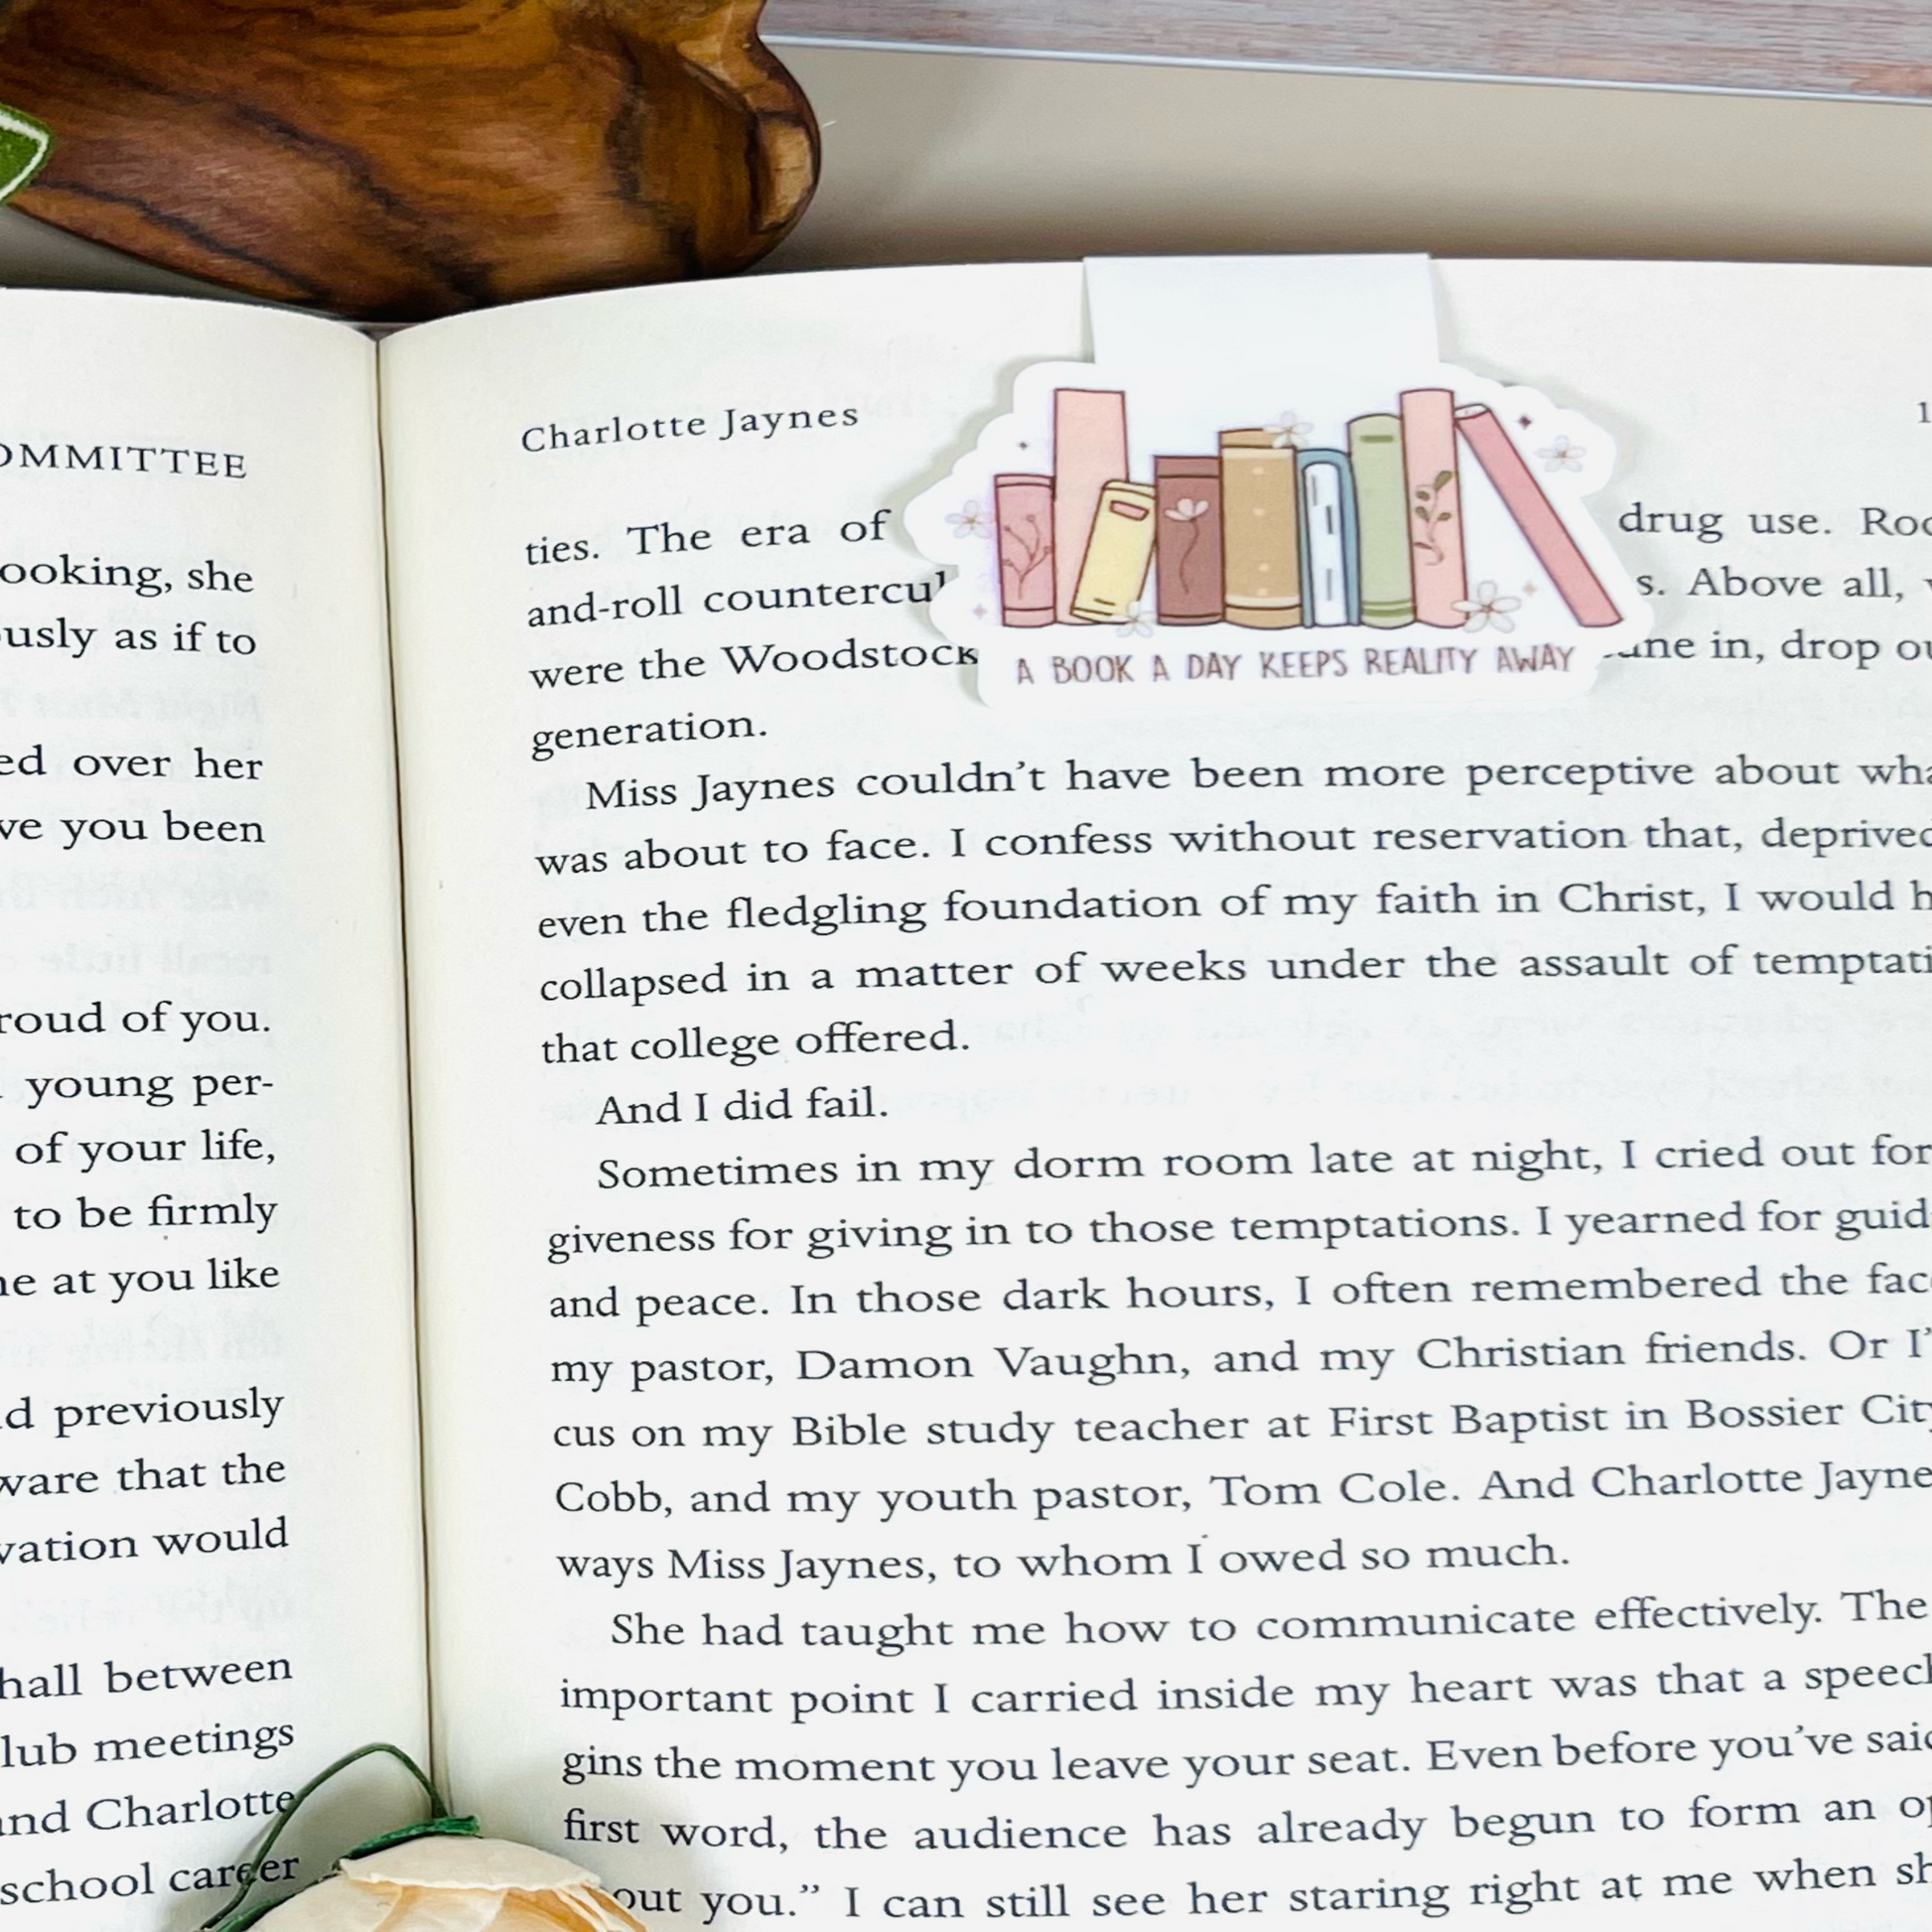 OMMITTEE
ooking, she
usly as if to
ed over her
ve you been
roud of you.
young per-
of your life,
to be firmly
ne at you like
d previously
ware that the
vation would
hall between
lub meetings
nd Charlotte
school career
Charlotte Jaynes 1
ties. The era of drug use. Roc
and-roll countercul s. Above all, w
were the Woodstock une in, drop ou
generation.
A BOOK A DAY KEEPS REALITY AWAY
Miss Jaynes couldn't have been more perceptive about wha
was about to face. I confess without reservation that, deprived
even the fledgling foundation of my faith in Christ, I would h
collapsed in a matter of weeks under the assault of temptati
that college offered.
And I did fail.
Sometimes in my dorm room late at night, I cried out for
giveness for giving in to those temptations. I yearned for guid
and peace. In those dark hours, I often remembered the fac
my pastor, Damon Vaughn, and my Christian friends. Or I'
cus on my Bible study teacher at First Baptist in Bossier City
Cobb, and my youth pastor, Tom Cole. And Charlotte Jayne
ways Miss Jaynes, to whom I owed so much.
She had taught me how to communicate effectively. The
important point I carried inside my heart was that a speech
gins the moment you leave your seat. Even before you've said
first word, the audience has already begun to form an op
out you." I can still see her staring right at me when sh